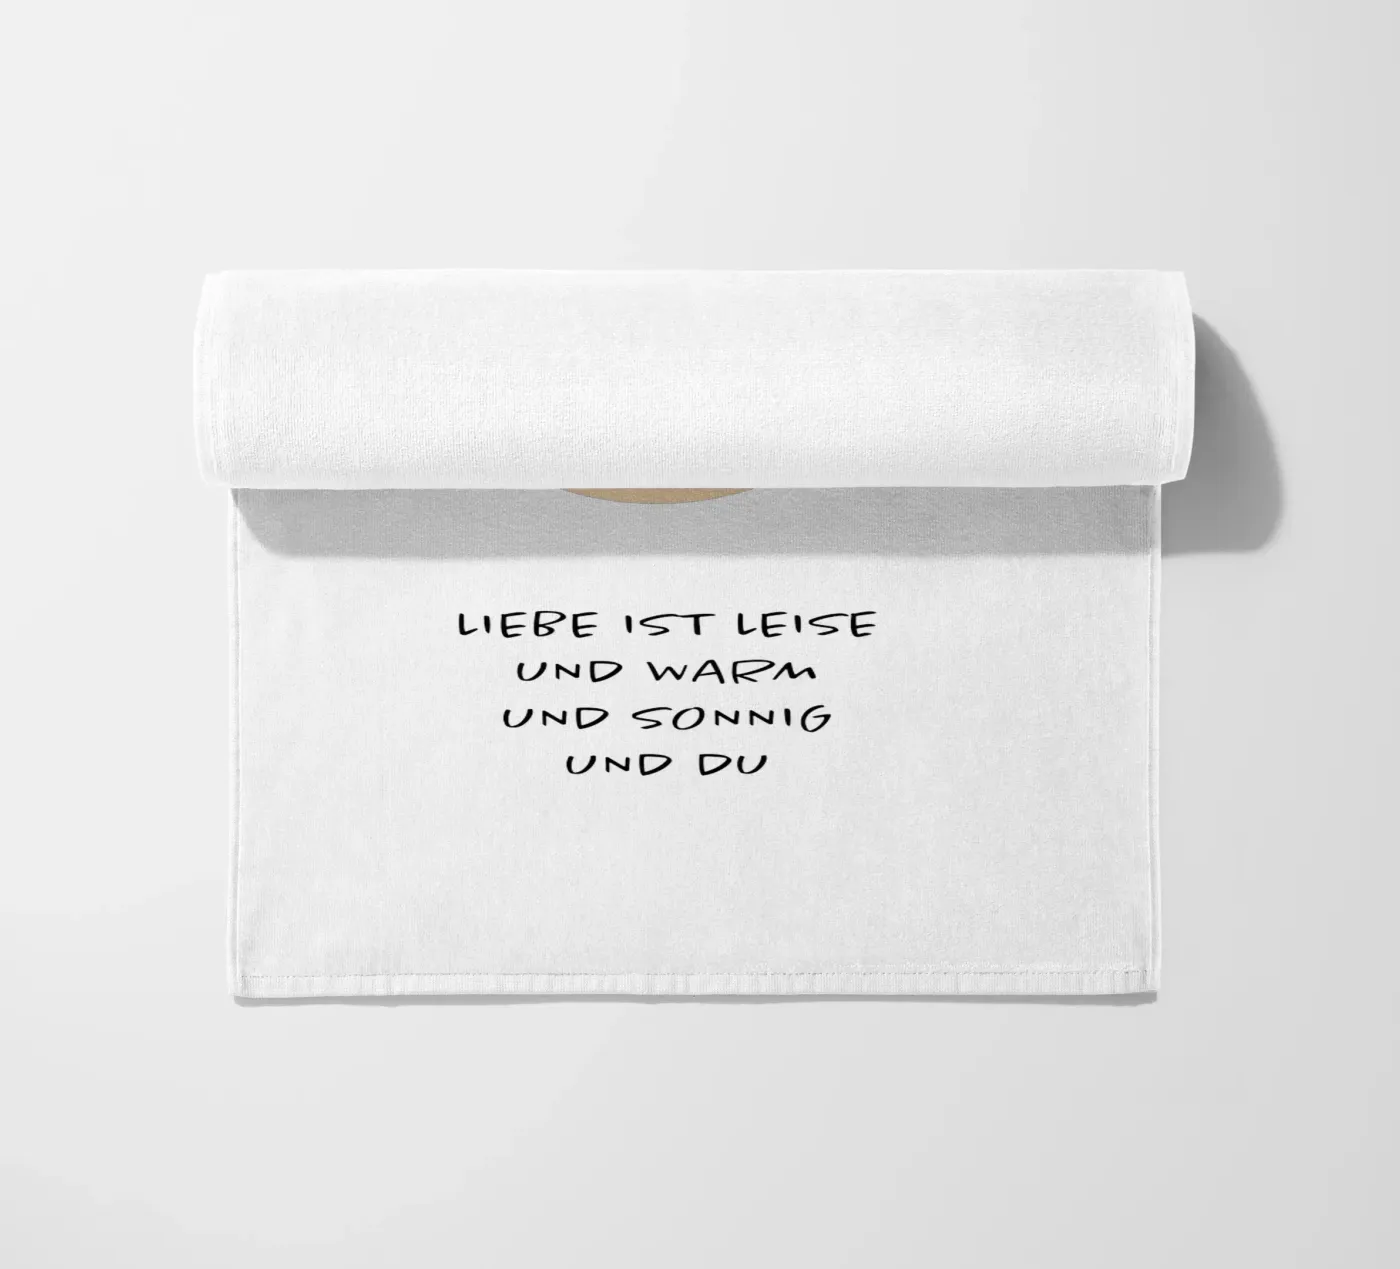 LIEBE IST LEISE
UND WARM
UND SONNIG
UND DU